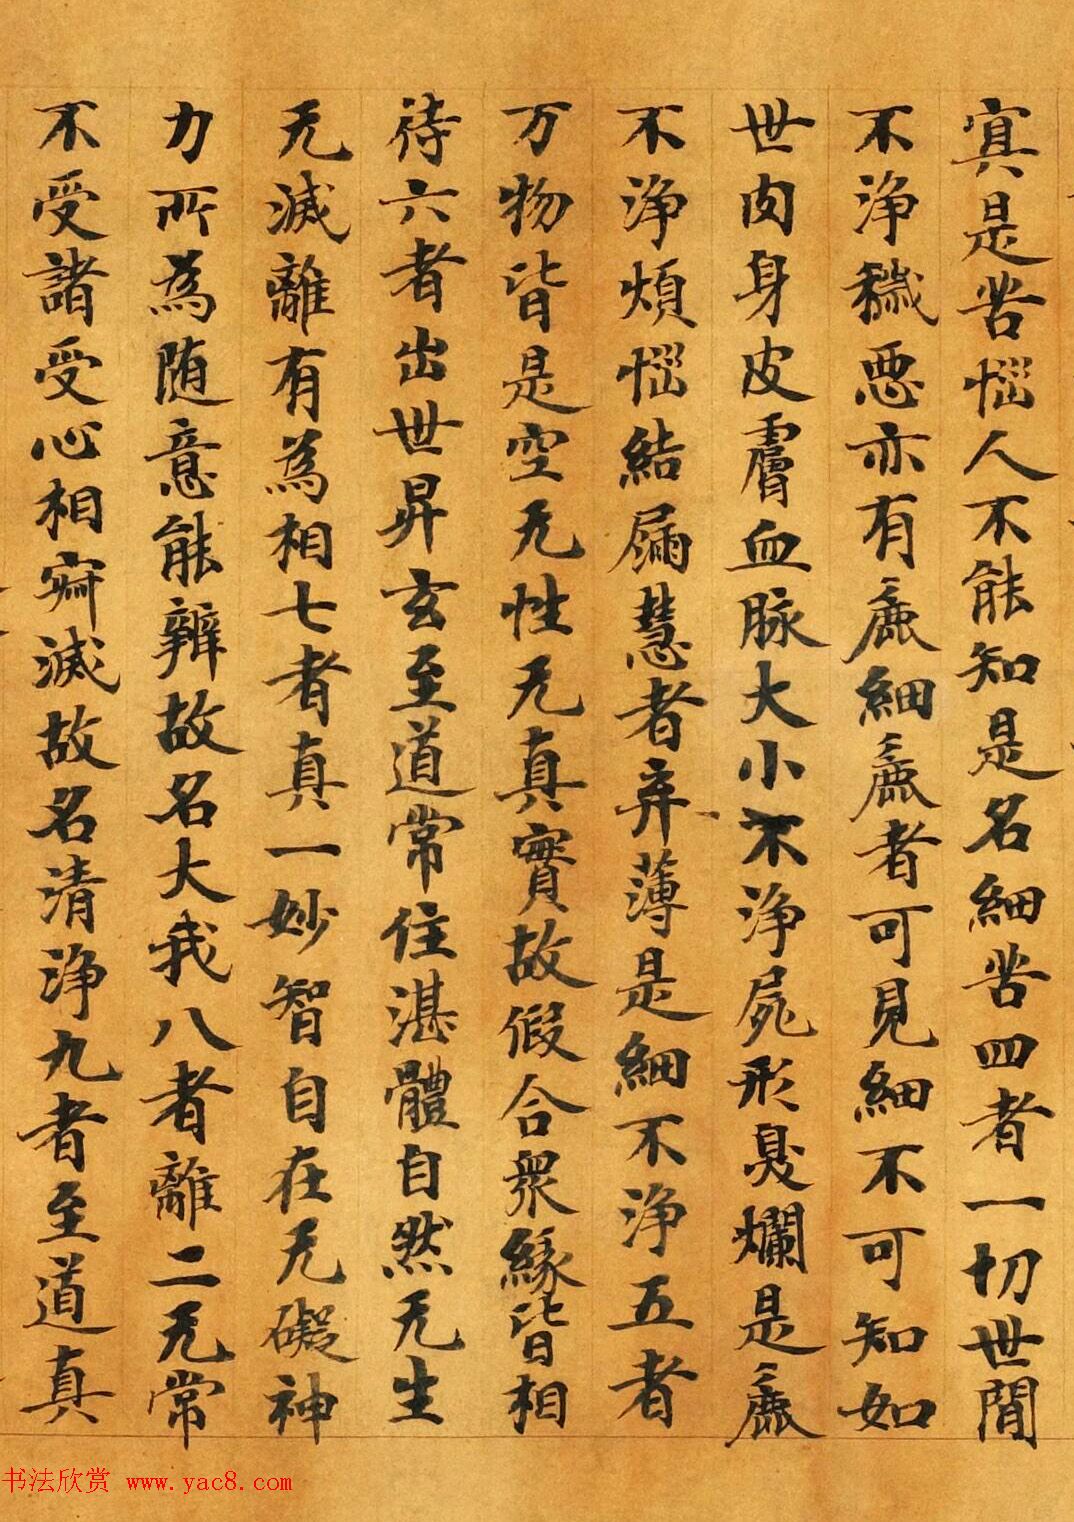 寘是苦惱人不能知是名細苦四者一切世間
不淨穢惡亦有麁細麁者可見細不可知如
世肉身皮膚血脉大小不淨屍形臭爛是麁
不淨煩惱結屬慧者弃薄是細不淨五者
万物皆是空无性无真實故假合眾緣皆相
待六者出世昇玄至道常住湛體自然无生
无滅離有為相七者真一妙智自在无礙神
力所為随意能辦故名大我八者離二无常
不受諸受心相寂滅故名清淨九者至道真
书法欣赏 www.yac8.com